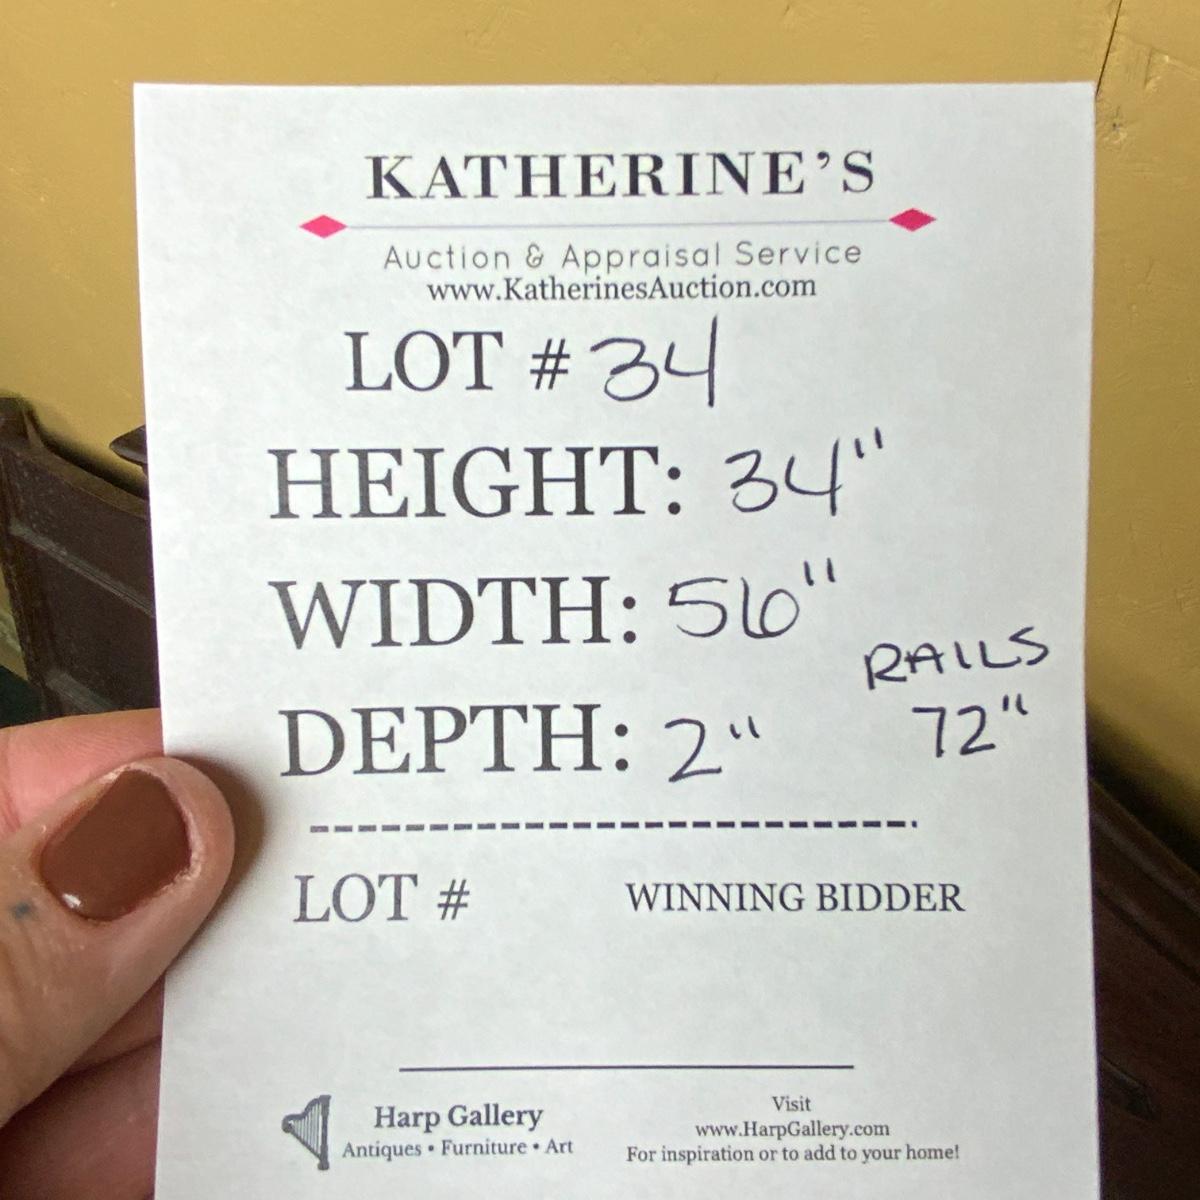 KATHERINE'S
Auction & Appraisal Service
www.KatherinesAuction.com
LOT # 34
HEIGHT: 34"
WIDTH: 56"
RAILS
DEPTH: 2" 72"
LOT # WINNING BIDDER
Harp Gallery
Antiques • Furniture • Art
Visit
www.HarpGallery.com
For inspiration or to add to your home!